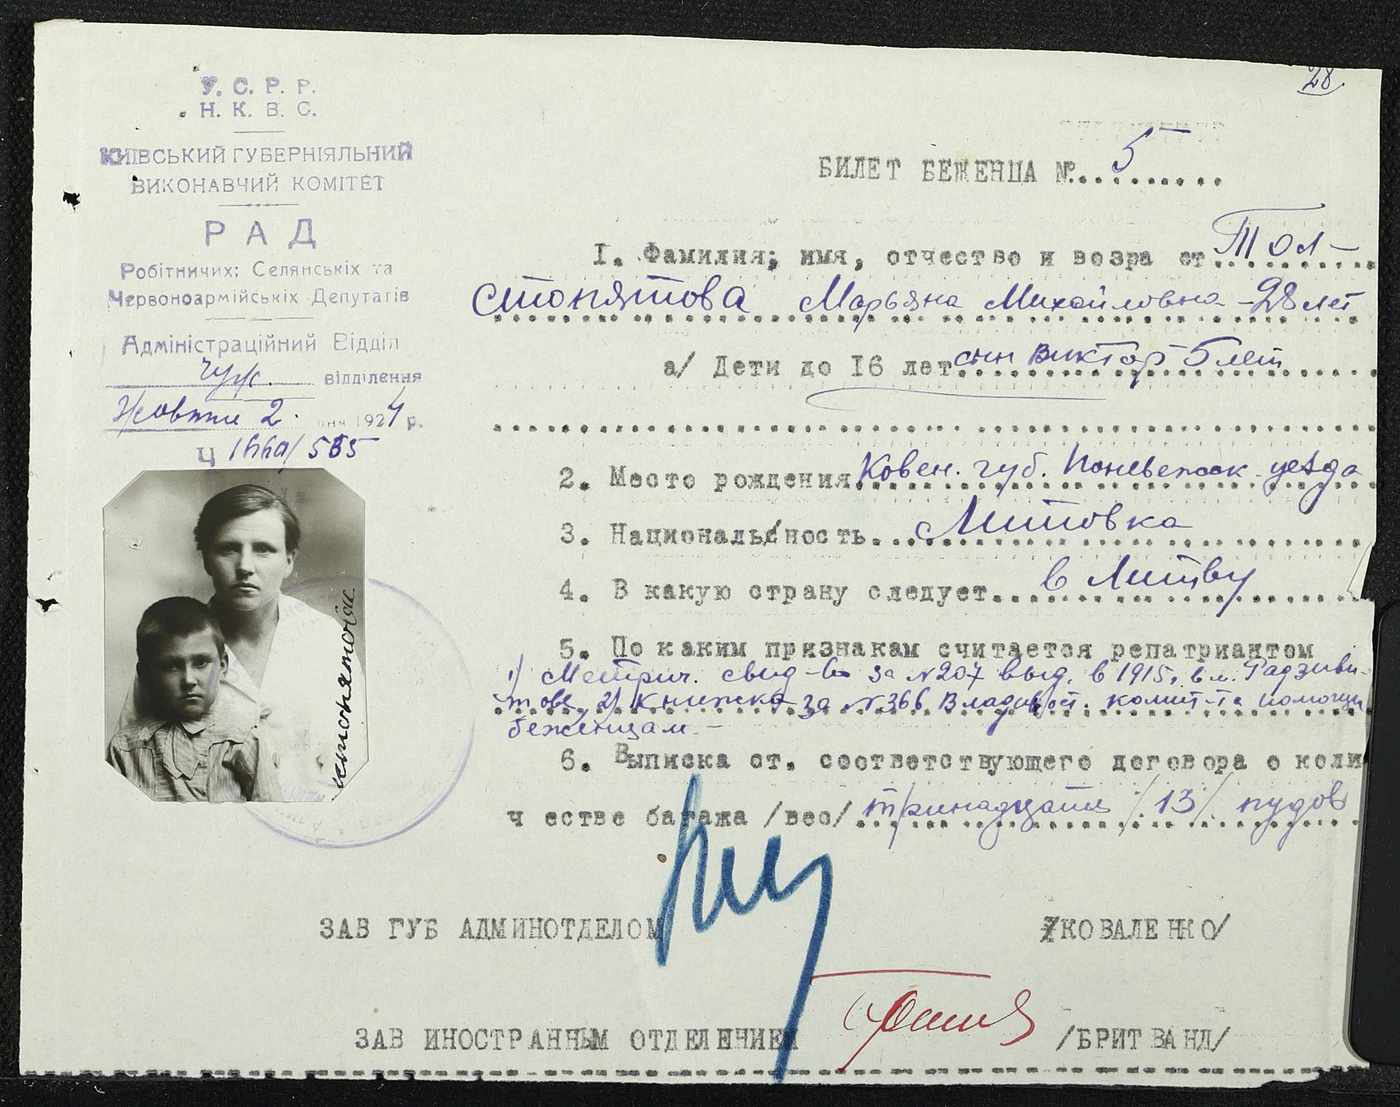 28
У. С. Р. Р.
Н. К. В. С.
КИЇВСЬКИЙ ГУБЕРНІЯЛЬНИЙ
ВИКОНАВЧИЙ КОМІТЕТ
РАД
Робітничих; Селянських та
Червоноармійських Депутатів
Адміністраційний Відділ
Чуж. відділення
Жовтня 2 дня 1924 р.
Ч
БИЛЕТ БЕЖЕНЦА №. 5
I. Фамилия; имя, отчество и возра ст Тол-
стопятова Марьяна Михайловна - 28 лет
а/ Дети до 16 лет сын Виктор 5 лет
2. Место рождения Ковен. губ. Поневежск уезда
3. Националь/ность Литовка
4. В какую страну следует в Литву
5. По каким признакам считается репатриантом
1) Метрич. свид-во за №207 выд. в 1915, в м. Радзиви-
тове, 2) Книжка за №366 Владивост. комит-та помощи
беженцам. -
6. Выписка от. соответствующего договора о коли
ч естве багажа /вес/ тринадцать /13/ пудов
ЗАВ ГУБ АДМИНОТДЕЛОМ /КОВАЛЕНКО/
ЗАВ ИНОСТРАННЫМ ОТДЕЛЕНИЕМ /БРИТВАНД/